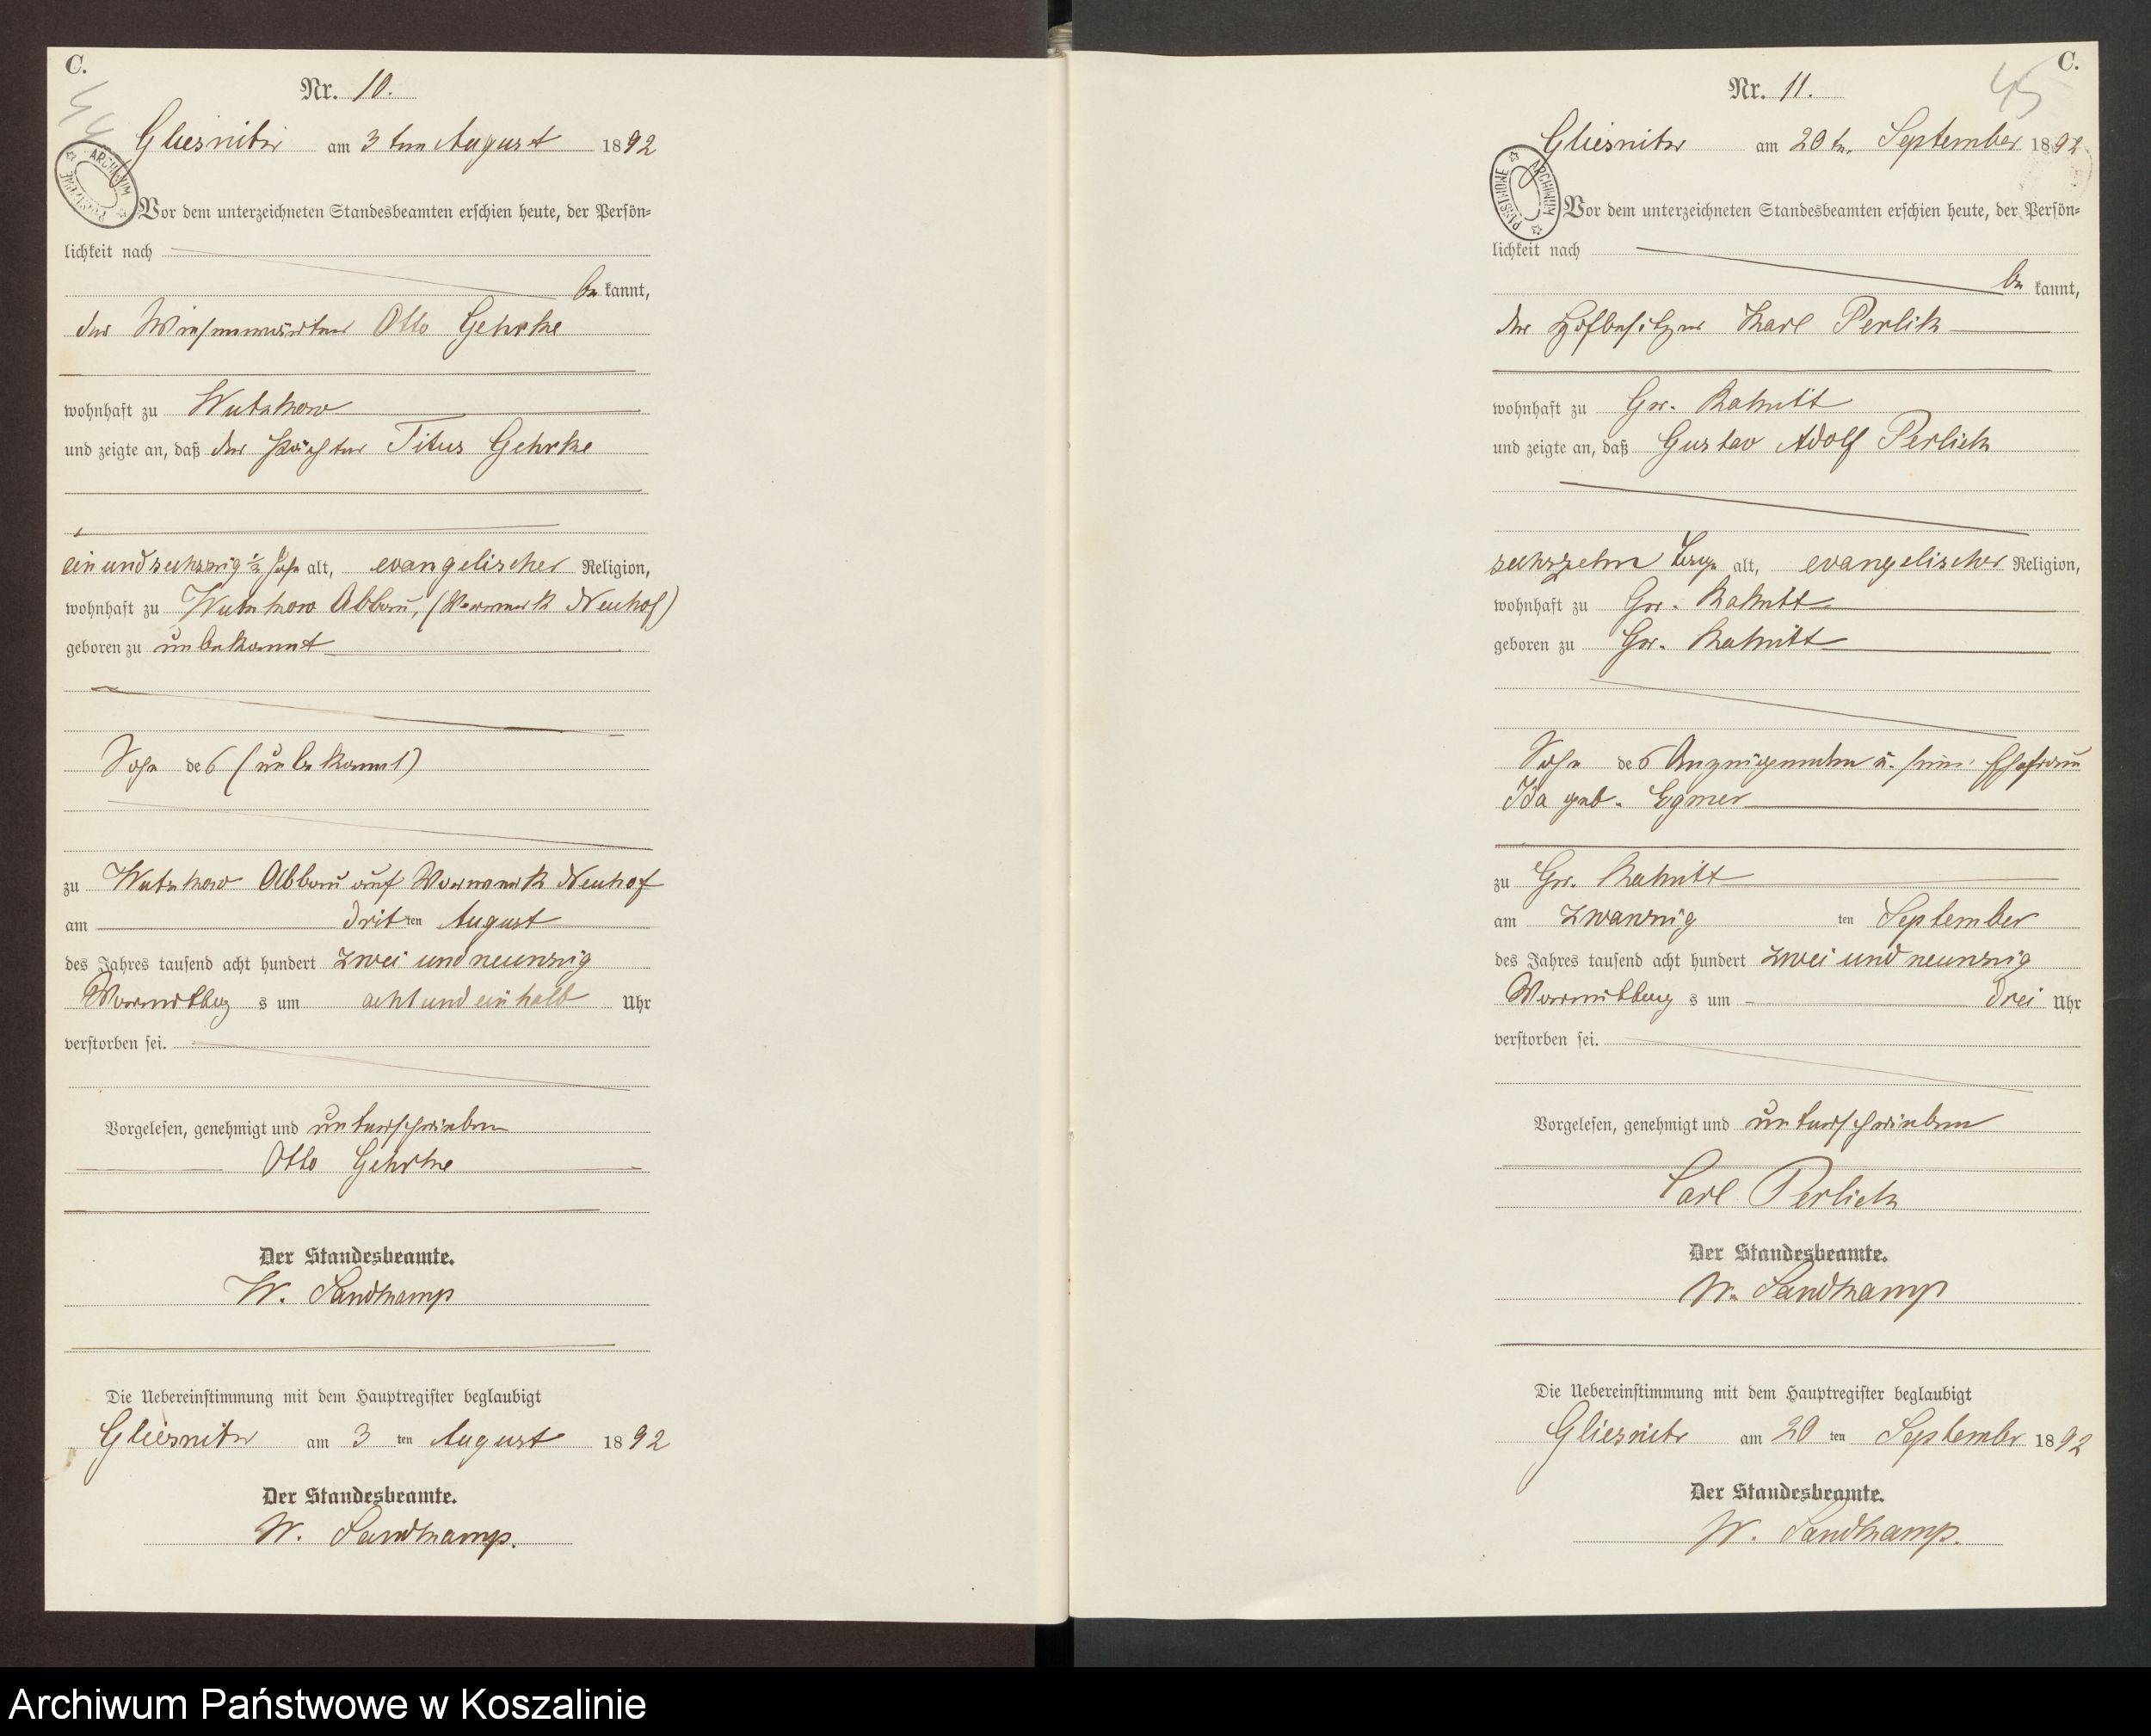 C.
44
Nr. 10.
Gliesnitz am 3ten August 1892
ARCHIWUM PAŃSTWOWE
Vor dem unterzeichneten Standesbeamten erschien heute, der Persön=
lichkeit nach
be kannt,
der Wiesenwärter Otto Gehrke
wohnhaft zu Wutzkow
und zeigte an, daß der Pächter Titus Gehrke
einundsechszig ½ Jahr alt, evangelischer Religion,
wohnhaft zu Wutzkow Abbau, (Vorwerk Neuhof)
geboren zu unbekannt
Sohn des (unbekannt)
zu Wutzkow Abbau auf Vorwerk Neuhof
am dritten August
des Jahres tausend acht hundert zwei und neunzig
Vormittag s um acht und ein halb Uhr
verstorben sei.
Vorgelesen, genehmigt und unterschrieben
Otto Gehrke
Der Standesbeamte.
W. Sandkamp
Die Uebereinstimmung mit dem Hauptregister beglaubigt
Gliesnitz am 3 ten August 1892
Der Standesbeamte.
W. Sandkamp.
C.
45
Nr. 11.
Gliesnitz am 20 ten September 1892
ARCHIWUM PAŃSTWOWE
Vor dem unterzeichneten Standesbeamten erschien heute, der Persön=
lichkeit nach
be kannt,
der Hofbesitzer Karl Perlik
wohnhaft zu Gr. Rakitt
und zeigte an, daß Gustav Adolf Perlick
sechszehn Tage alt, evangelischer Religion,
wohnhaft zu Gr. Rakitt
geboren zu Gr. Rakitt
Sohn des Anzeigenden u. seiner Ehefrau
Ida geb. Egmer
zu Gr. Rakitt
am zwanzig ten September
des Jahres tausend acht hundert zwei und neunzig
Vormittag s um drei Uhr
verstorben sei.
Vorgelesen, genehmigt und unterschrieben
Carl Perlick
Der Standesbeamte.
W. Sandkamp
Die Uebereinstimmung mit dem Hauptregister beglaubigt
Gliesnitz am 20 ten September 1892
Der Standesbeamte.
W. Sandkamp.
Archiwum Państwowe w Koszalinie